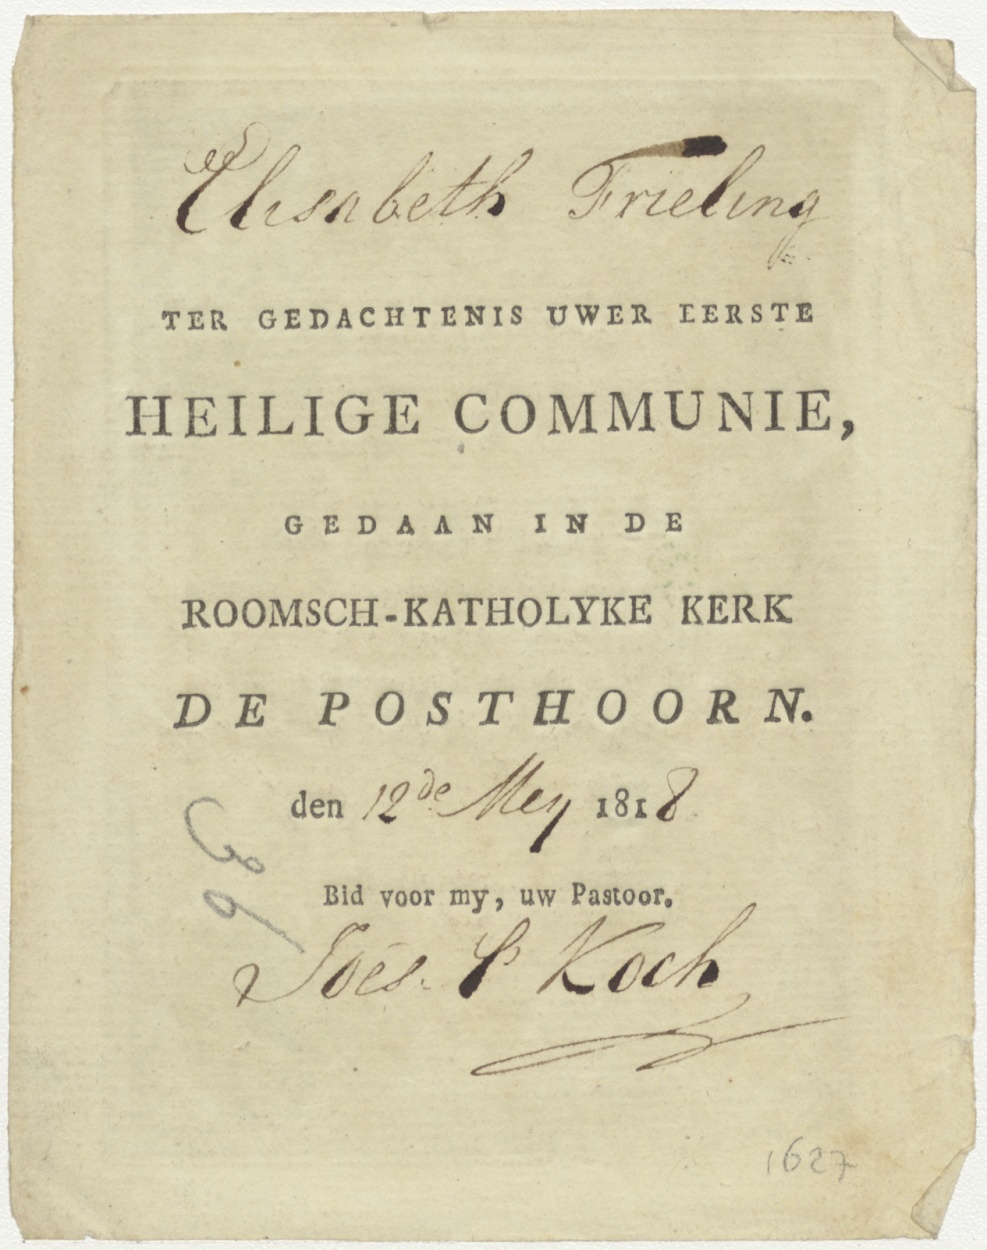 Elisabeth Frieling
TER GEDACHTENIS UWER EERSTE
HEILIGE COMMUNIE,
GEDAAN IN DE
ROOMSCH-KATHOLYKE KERK
DE POSTHOORN.
den 12de Mey 1818
Bid voor my, uw Pastoor.
Joës. P Koch
36
1627